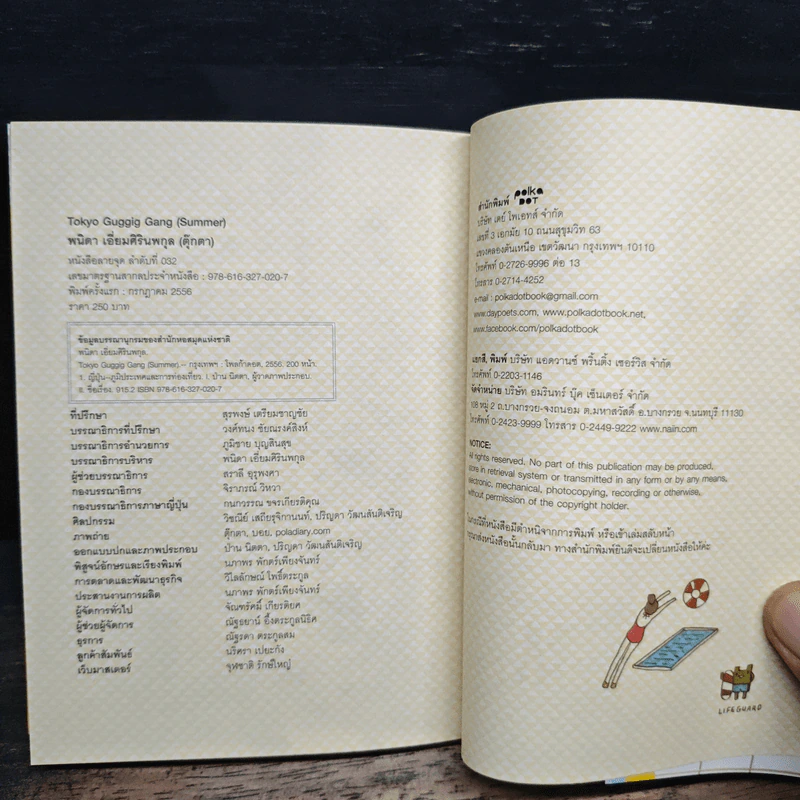 Tokyo Guggig Gang (Summer)
พนิดา เอี่ยมศิรินพกุล (ตุ๊กตา)
หนังสือลายจุด ลำดับที่ 032
เลขมาตรฐานสากลประจำหนังสือ : 978-616-327-020-7
พิมพ์ครั้งแรก : กรกฎาคม 2556
ราคา 250 บาท
ข้อมูลบรรณานุกรมของสำนักหอสมุดแห่งชาติ
พนิดา เอี่ยมศิรินพกุล.
Tokyo Guggig Gang (Summer).-- กรุงเทพฯ : โพลก้าดอต, 2556. 200 หน้า.
1. ญี่ปุ่น--ภูมิประเทศและการท่องเที่ยว. I. ป่าน นิตตา, ผู้วาดภาพประกอบ.
II. ชื่อเรื่อง. 915.2 ISBN 978-616-327-020-7
ที่ปรึกษา สุรพงษ์ เตรียมชาญชัย
บรรณาธิการที่ปรึกษา วงศ์ทนง ชัยณรงค์สิงห์
บรรณาธิการอำนวยการ ภูมิชาย บุญสินสุข
บรรณาธิการบริหาร พนิดา เอี่ยมศิรินพกุล
ผู้ช่วยบรรณาธิการ สราลี อุรุพงศา
กองบรรณาธิการ จิราภรณ์ วิหวา
กองบรรณาธิการภาษาญี่ปุ่น กนกวรรณ ขจรเกียรติคุณ
ศิลปกรรม วิชณีย์ เสถียรุจิกานนท์, ปริญดา วัฒนสันติเจริญ
ภาพถ่าย ตุ๊กตา, บอย, poladiary.com
ออกแบบปกและภาพประกอบ ป่าน นิตตา, ปริญดา วัฒนสันติเจริญ
พิสูจน์อักษรและเรียงพิมพ์ นภาพร พักตร์เพียงจันทร์
การตลาดและพัฒนาธุรกิจ วิไลลักษณ์ โพธิ์ตระกูล
ประสานงานการผลิต นภาพร พักตร์เพียงจันทร์
ผู้จัดการทั่วไป จัณฑรัศมิ์ เกียรติยศ
ผู้ช่วยผู้จัดการ ณัฐธยาน์ อึ้งตระกูลนิธิศ
ธุรการ ณัฐรดา ตระกูลสม
ลูกค้าสัมพันธ์ นริศรา เปยะกัง
เว็บมาสเตอร์ จุฬชาติ รักษ์ใหญ่
สำนักพิมพ์ polka DOT
บริษัท เดย์ โพเอทส์ จำกัด
เลขที่ 3 เอกมัย 10 ถนนสุขุมวิท 63
แขวงคลองตันเหนือ เขตวัฒนา กรุงเทพฯ 10110
โทรศัพท์ 0-2726-9996 ต่อ 13
โทรสาร 0-2714-4252
e-mail : polkadotbook@gmail.com
www.daypoets.com, www.polkadotbook.net,
www.facebook.com/polkadotbook
แยกสี, พิมพ์ บริษัท แอดวานซ์ พริ้นติ้ง เซอร์วิส จำกัด
โทรศัพท์ 0-2203-1146
จัดจำหน่าย บริษัท อมรินทร์ บุ๊ค เซ็นเตอร์ จำกัด
108 หมู่ 2 ถ.บางกรวย-จงถนอม ต.มหาสวัสดิ์ อ.บางกรวย จ.นนทบุรี 11130
โทรศัพท์ 0-2423-9999 โทรสาร 0-2449-9222 www.naiin.com
NOTICE:
All rights reserved. No part of this publication may be produced,
store in retrieval system or transmitted in any form or by any means,
electronic, mechanical, photocopying, recording or otherwise,
without permission of the copyright holder.
ในกรณีที่หนังสือมีตำหนิจากการพิมพ์ หรือเข้าเล่มสลับหน้า
กรุณาส่งหนังสือนั้นกลับมา ทางสำนักพิมพ์ยินดีจะเปลี่ยนหนังสือให้ค่ะ
LIFEGUARD